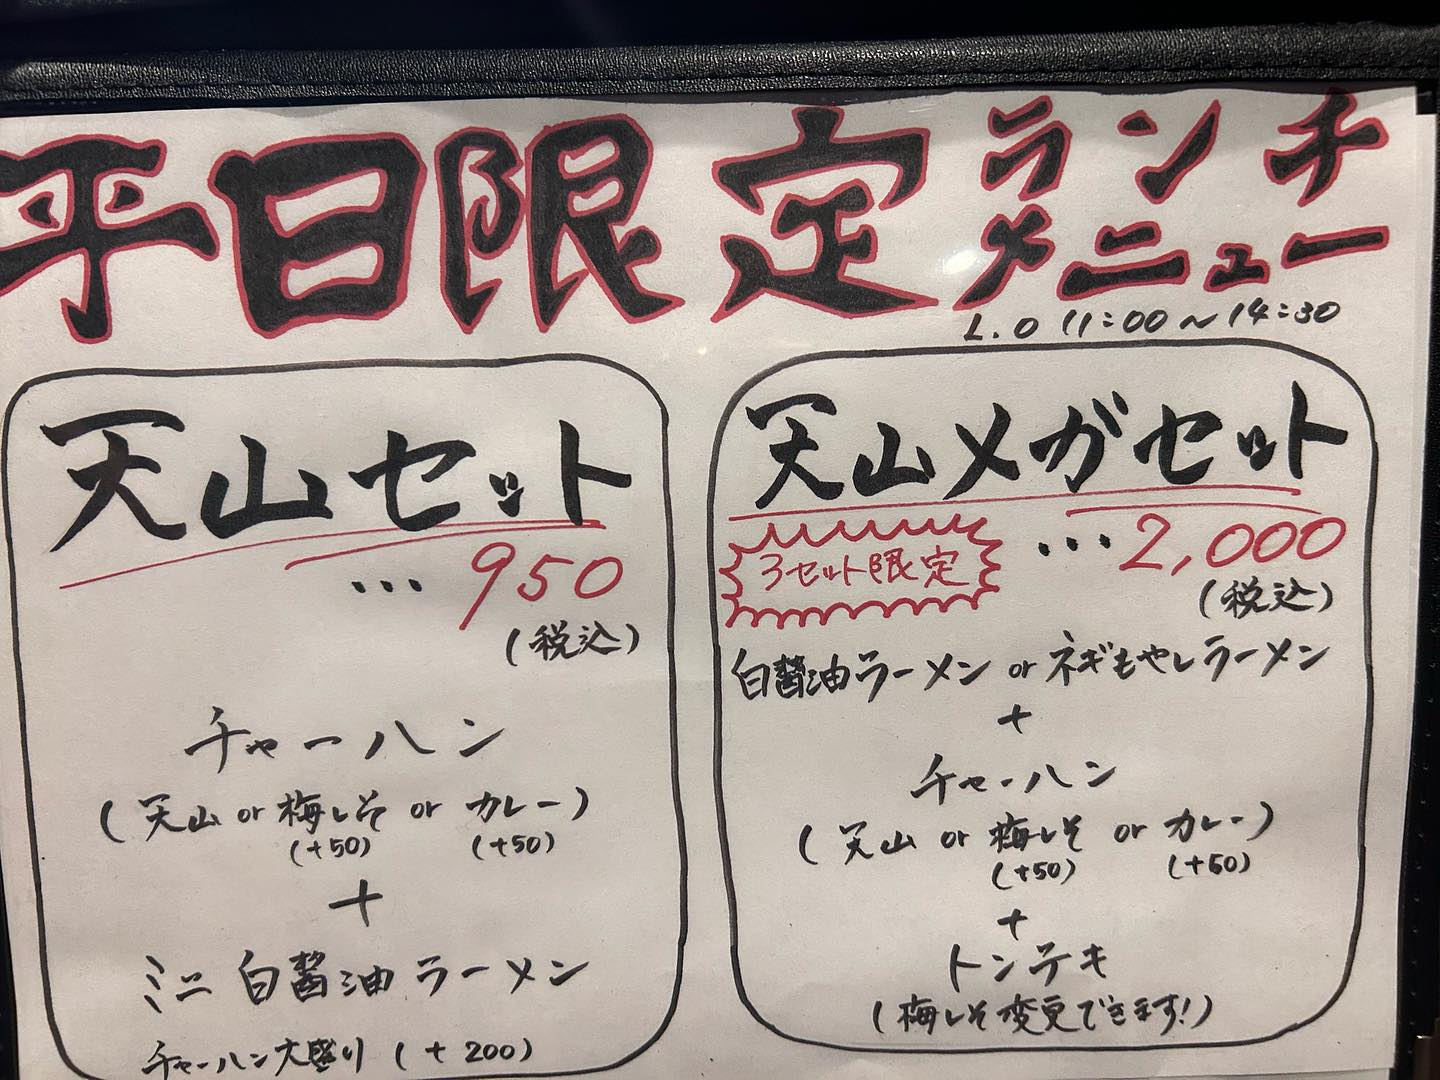 平日限定ランチ
メニュー
L.O 11:00〜14:30
天山セット
…950
(税込)
チャーハン
(天山 or 梅しそ or カレー)
(+50) (+50)
+
ミニ 白醤油ラーメン
チャーハン大盛り (+200)
天山メガセット
3セット限定 …2,000
(税込)
白醤油ラーメン or ネギもやしラーメン
+
チャーハン
(天山 or 梅しそ or カレー)
(+50) (+50)
+
トンテキ
(梅しそ変更できます!)